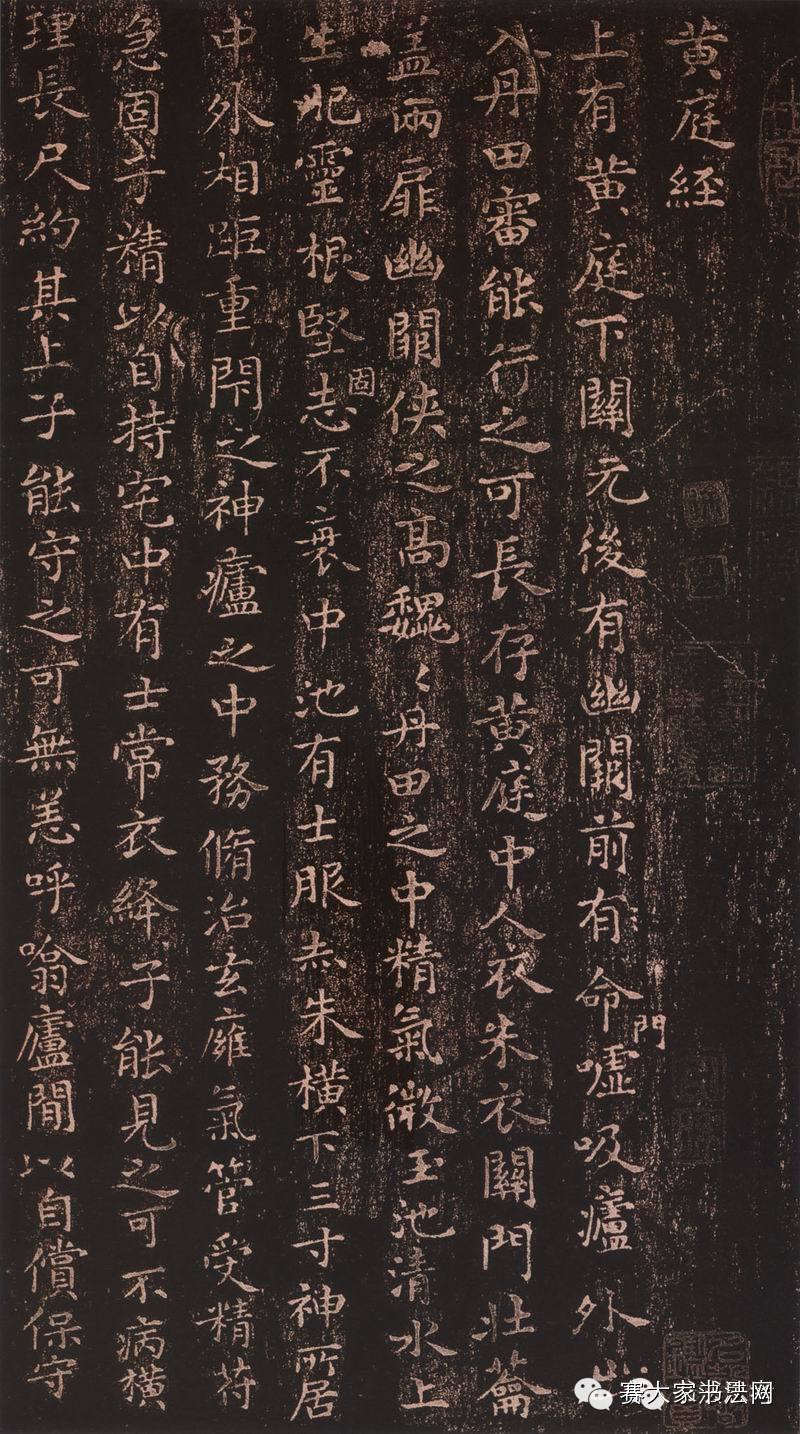 黄庭經
上有黄庭下關元後有幽闕前有命門噓吸廬外出
入丹田審能行之可長存黄庭中人衣朱衣關門壯蘥
盖兩扉幽闕俠之高魏〻丹田之中精氣微玉池清水上
生肥靈根堅固志不衰中池有士服赤朱橫下三寸神所居
中外相距重閇之神廬之中務脩治玄廱氣管受精苻
急固子精以自持宅中有士常衣絳子能見之可不病橫
理長尺約其上子能守之可無恙呼噏廬間以自償保守
賽大家书法网